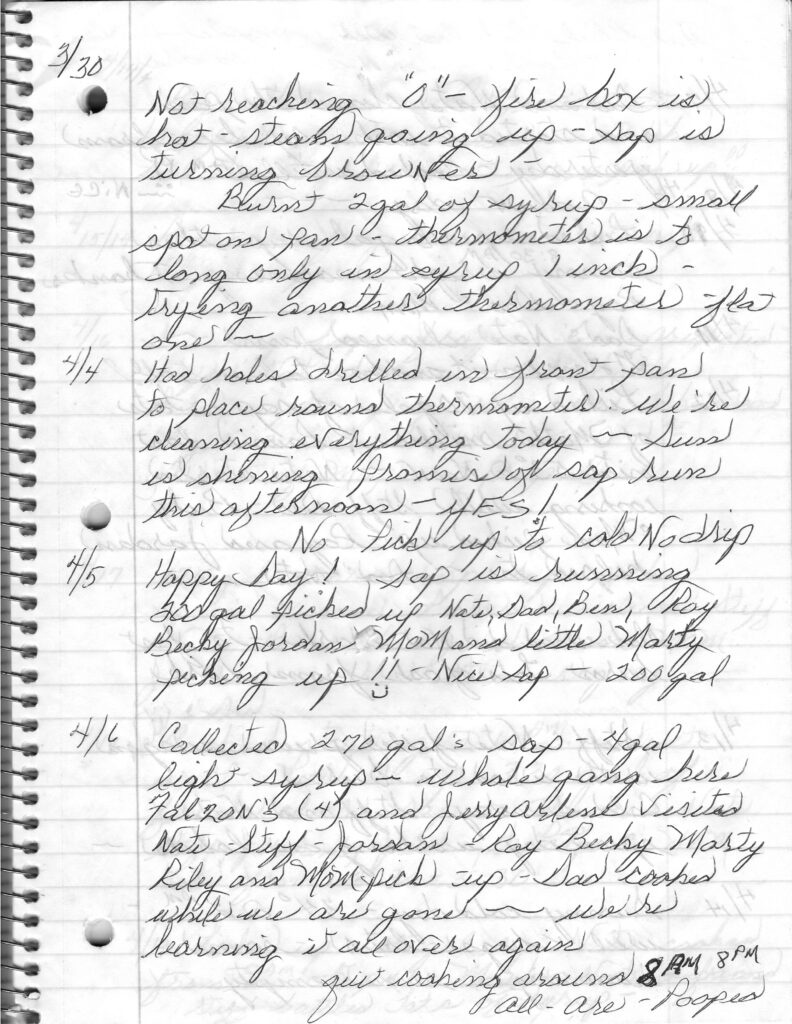 3/30
Not reaching "0" - fire box is
hot - steam going up - sap is
turning browner -
Burnt 2 gal of syrup - small
spot on pan - thermometer is to
long only in syrup 1 inch -
trying another thermometer - flat
one ~
4/4 Had holes drilled in front pan
to place round thermometer. We're
cleaning everything today ~ Sun
is shining Promise of sap run
this afternoon - YES!
No Pick up to cold No drip
4/5 Happy Day! Sap is running
200 gal picked up Nate, Dad, Ben, Roy
Becky Jordan MOM and little Marty
picking up !! - Nice sap - 200 gal
4/6 Collected 270 gal's sap - 4 gal
ligh syrup ~ whole gang here
(4) and Jerry Arlene visited
Nate - Steff - Jordan - Roy Becky Marty
Riley and MOM pick - up - Dad cooked
while we are gone ~ we're
learning it all over again
quit cooking around 8 AM 8 PM
All - are - Pooped